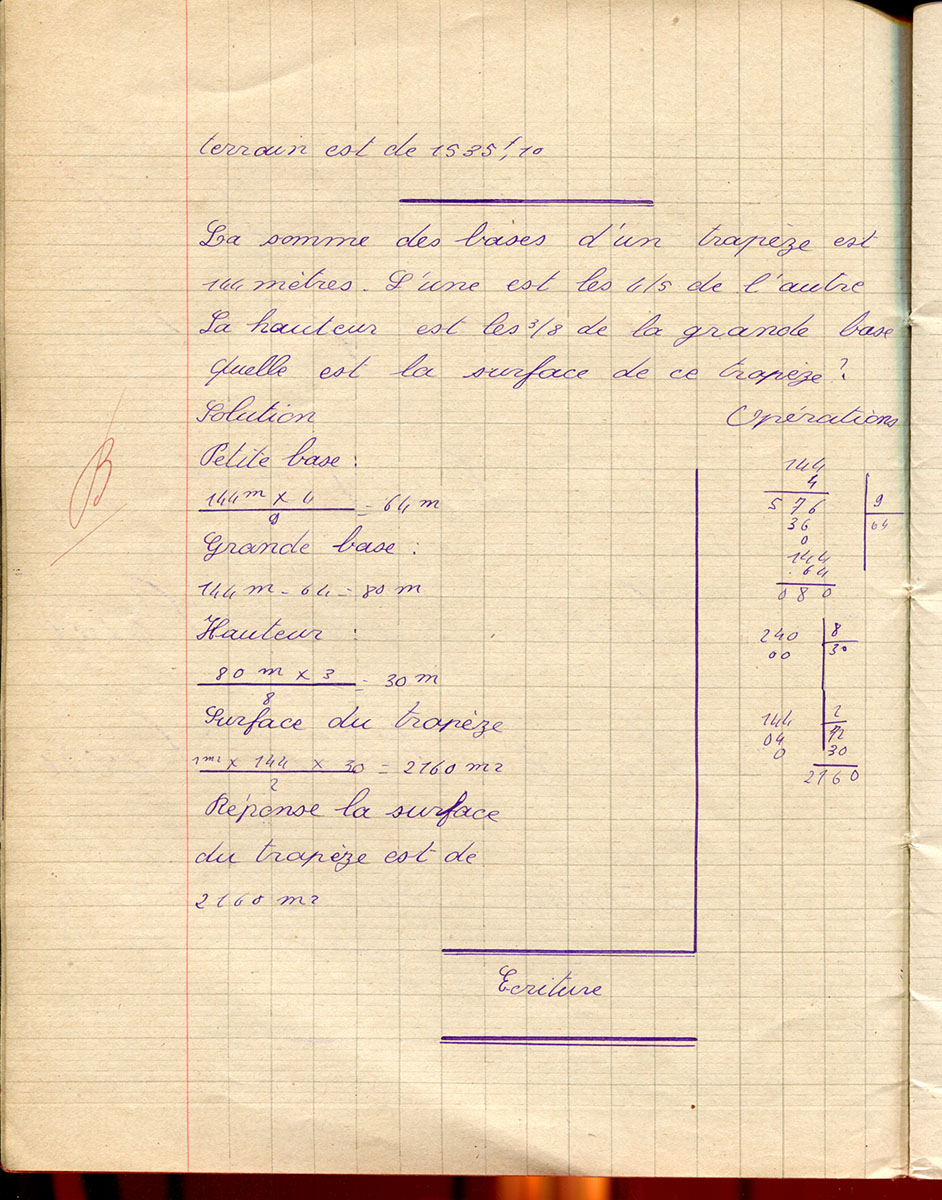 terrain est de 1535f,10
La somme des bases d'un trapèze est
144 mètres. L'une est les 4/5 de l'autre
La hauteur est les 3/8 de la grande base
Quelle est la surface de ce trapèze?
Solution
Opérations
Petite base :
144m x 4
9
= 64 m
Grande base :
144 m - 64 = 80 m
Hauteur :
80 m x 3
8
= 30 m
Surface du trapèze
1m2 x 144 x 30 = 2160 m2
2
Réponse la surface
du trapèze est de
2160 m2
B
144
4
576 9
36 64
0
144
64
080
240 8
00 30
144 2
04 72
0 30
2160
Ecriture